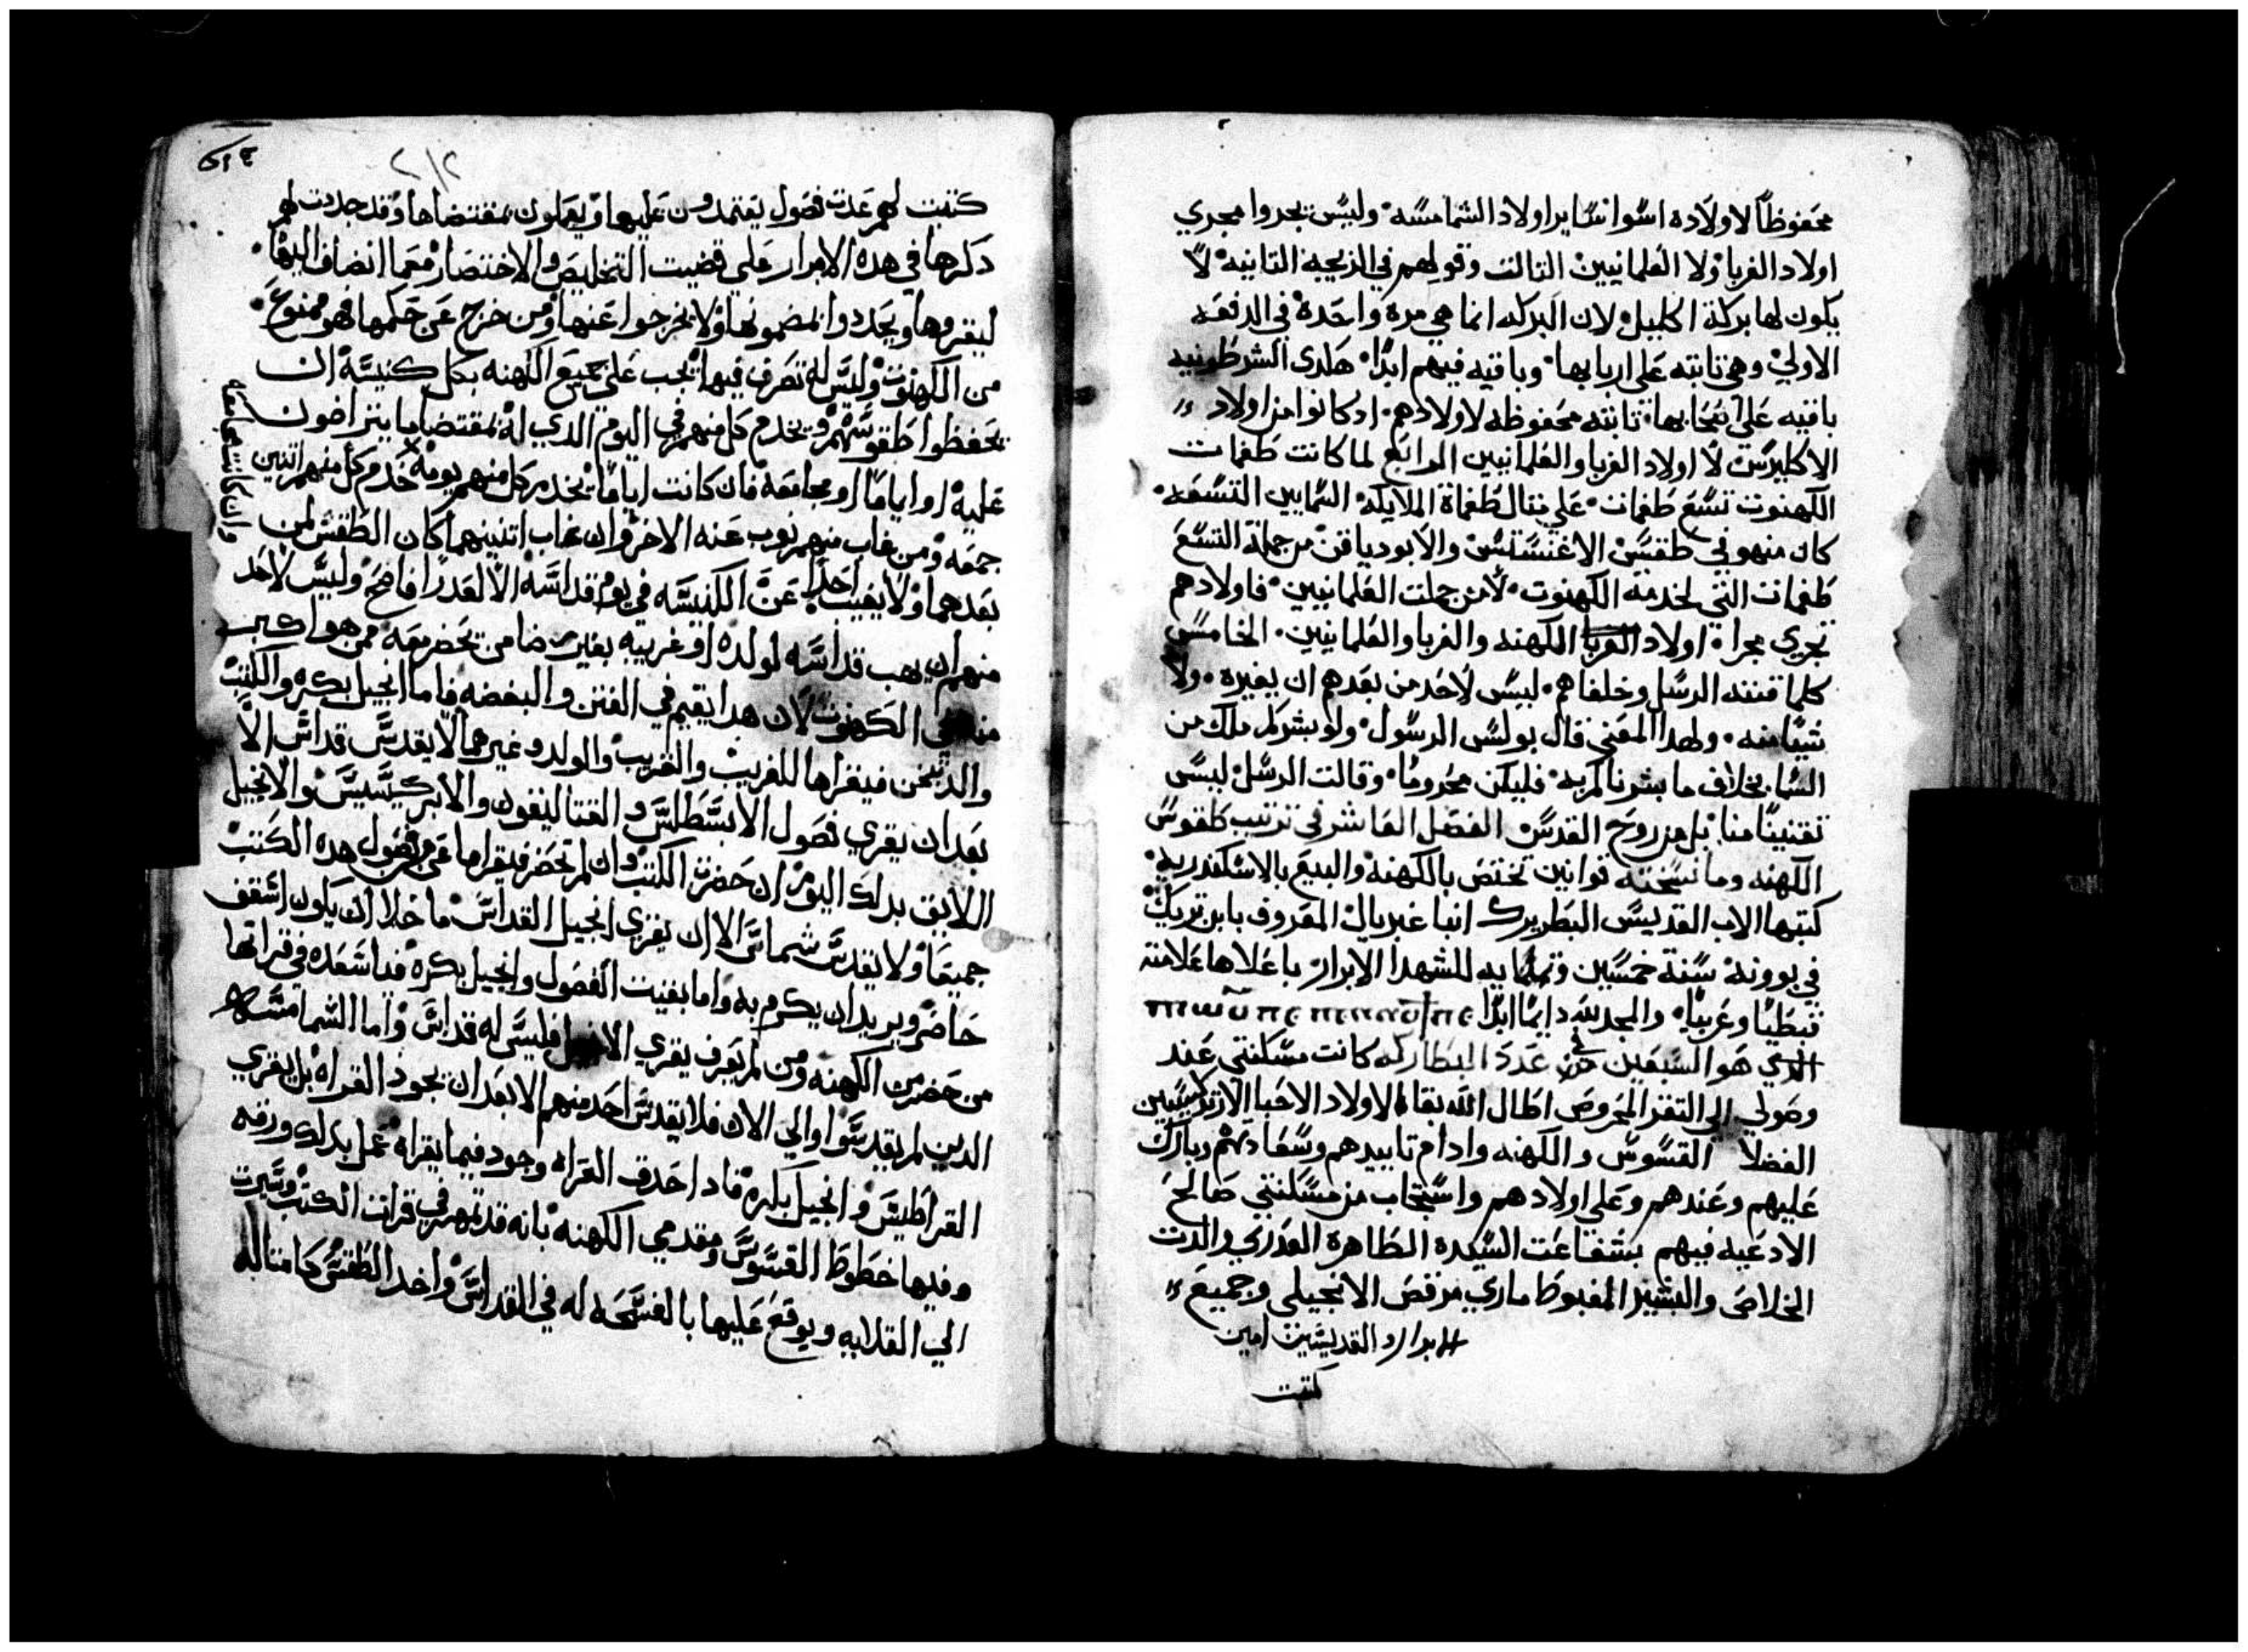 محفوظاً لاولاده اسوا سايراولاد الشمامسه وليس يجروا مجري
اولاد الغربا ولا العلمانيين الثالث وقولهم في الزيجه الثانيه لا
يكون لها بركة اكليل لان البركه انما هي مره واحده في الدفعه
الاولي وهي ثابته علي اربابها وباقيه فيهم ابدًا هكدي الشرطونيه
باقيه علي اصحابها ثابته محفوظه لاولادهم ادكانوا من اولاد
الاكليرس لا اولاد الغربا والعلمانيين الرابع لما كانت طغمات
الكهنوت تسع طغمات علي مثال طغماة الملايكه السمايين التسعه
كان منهو في طقس الاغنسطس والابودياقن من جملة التسع
طغمات التي لخدمة الكهنوت لا من جملت العلمانيين فاولادهم
تجري مجراه اولاد الغربا الكهنه والغربا والعلمانيين الخامس
كلما قننته الرسل وخلفاهم ليس لاحد من بعدهم ان يغيره ولا
شيًا منه ولهدا المعني قال بولس الرسول ولو بشركم ملاك من
السما بخلاف ما بشرناكم به فليكن محرومًا وقالت الرسل ليس
تقنينًا منا بل من روح القدس الفصل العاشر في ترتيب طقوس
الكهنه وما نسخته قوانين تختص بالكهنة والبيع بالاسكندريه
كتبها الاب القديس البطريرك انبا غبريال المعروف بابن تريك
في بوونه سنة خمسين وثمانمايه للشهدا الابرار باعلاها علامته
قبطيًا وعربيًا والمجد لله دايمًا ابدًا
الدي هو السبعين في عدد البطاركه كانت مسكنتي عند
وصولي الي الثغر المحروص اطال الله بقا الاولاد الاحبا الارتدكسيين
الفضلا القسوس والكهنه وادام تاييدهم وسعادتهم وبارك
عليهم وعندهم وعلي اولادهم واستجاب من مسكنتي صالح
الادعيه فيهم بشفاعت السيده الطاهرة العدري والدت
الخلاص والبشير المغبوط ماري مرقص الانجيلي وجميع
الابرار والقديسين امين
كتبت
٢١٢
كتبت لهم عدت فصول يعتمدون عليها ويعملون بمقتضاها وقد جددت لهم
دكرها في هده الابرار علي قضيت التخليص والاختصار معما انضاف اليها
ليقروها ويجددوا مضمونها ولا يخرجوا عنها ومن خرج عن حكمها فهو ممنوع
من الكهنوت وليس له تصرف فيها يجب علي جميع الكهنه بكل كنيسة ان
يحفظوا طقوسهم ويخدم كل منهم في اليوم الدي له بمقتضاما يتراضون
عليه اواياما او مجامعة فان كانت اياما يخدم كل منهم يومه خدم كل منهم اثنين
وان كانت مجامعه
جمعه ومن غاب منهم نوب عنه الاخر وان غاب اتنينهما كان الطقس لمن
بعدهما ولا يغيب احدا عن الكنيسه في يوم قداسه الا لعدر فاضح وليس لاحد
منهم ان يهب قداسه لولده او غريبه بغير رضا من يحضر معه ممن هو اكبر
منه في الكهنوت لان هدا يقيم في الفتن والبغضه فاما انجيل بكره والكتب
والدبخن فيقراها للغريب والقريب والولد وغيرهم الا يقدس قداس الا
بعد ان يقري فصول الابسطلس والقتاليقون والابركسيس والانجيل
اللايق بدلك اليوم ان حضرت الكتب وان لم تحضر فيقرا ما عرض من فصول هده الكتب
جميعا ولا يقدس شماس الا ان يقري انجيل القداس ما خلا ان يكون اسقف
حاضر ويريد ان يكرم به واما بقيت الفصول وانجيل بكرة فدا شعده في قراتها
من حضر من الكهنه ومن لم يعرف يقري الانجيل فليس له قداس واما الشمامسه
الدين لم يقدسوا والي الان فلا يقدس احد منهم الا بعد ان يجود القراه بل يقري
القراطيس وانجيل بكره فادا حدق القراه وجود فيما يقراه عمل بدلك ورقه
وفيها خطوط القسوس ومقدمي الكهنه بانه قد تمهر في قرات الكتب وسيرت
الي القلايه ويوقع عليها بالفسحه له في القداس واخد الطقس كامثاله